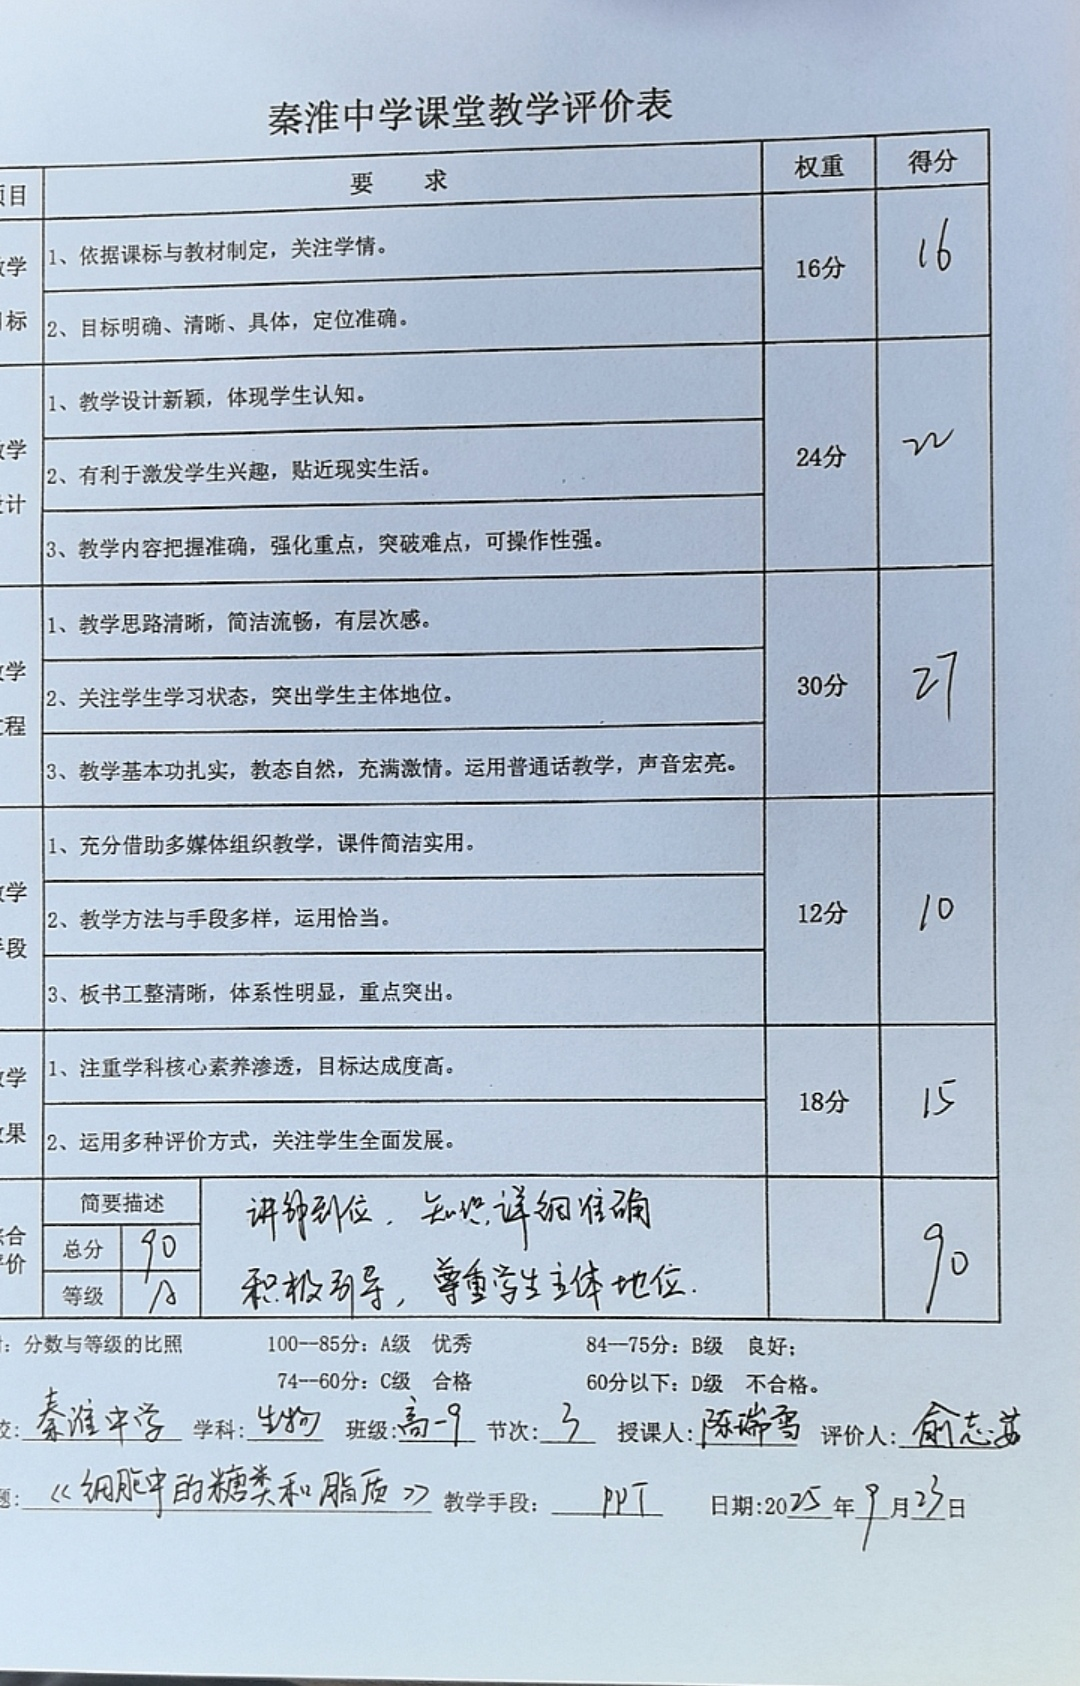 秦淮中学课堂教学评价表
项目 要 求 权重 得分
教学
目标
1、依据课标与教材制定，关注学情。
2、目标明确、清晰、具体，定位准确。
16分 16
教学
设计
1、教学设计新颖，体现学生认知。
2、有利于激发学生兴趣，贴近现实生活。
3、教学内容把握准确，强化重点，突破难点，可操作性强。
24分 22
教学
过程
1、教学思路清晰，简洁流畅，有层次感。
2、关注学生学习状态，突出学生主体地位。
3、教学基本功扎实，教态自然，充满激情。运用普通话教学，声音宏亮。
30分 27
教学
手段
1、充分借助多媒体组织教学，课件简洁实用。
2、教学方法与手段多样，运用恰当。
3、板书工整清晰，体系性明显，重点突出。
12分 10
教学
效果
1、注重学科核心素养渗透，目标达成度高。
2、运用多种评价方式，关注学生全面发展。
18分 15
综合
评价
简要描述
总分 90
等级 A
讲解到位，知识详细准确
积极引导，尊重学生主体地位.
90
附：分数与等级的比照 100--85分：A级 优秀 84--75分：B级 良好；
74--60分：C级 合格 60分以下：D级 不合格。
校：秦淮中学 学科：生物 班级：高一9 节次：3 授课人：陈瑞雪 评价人：俞志
题：《细胞中的糖类和脂质》 教学手段：PPT 日期：2025年9月23日